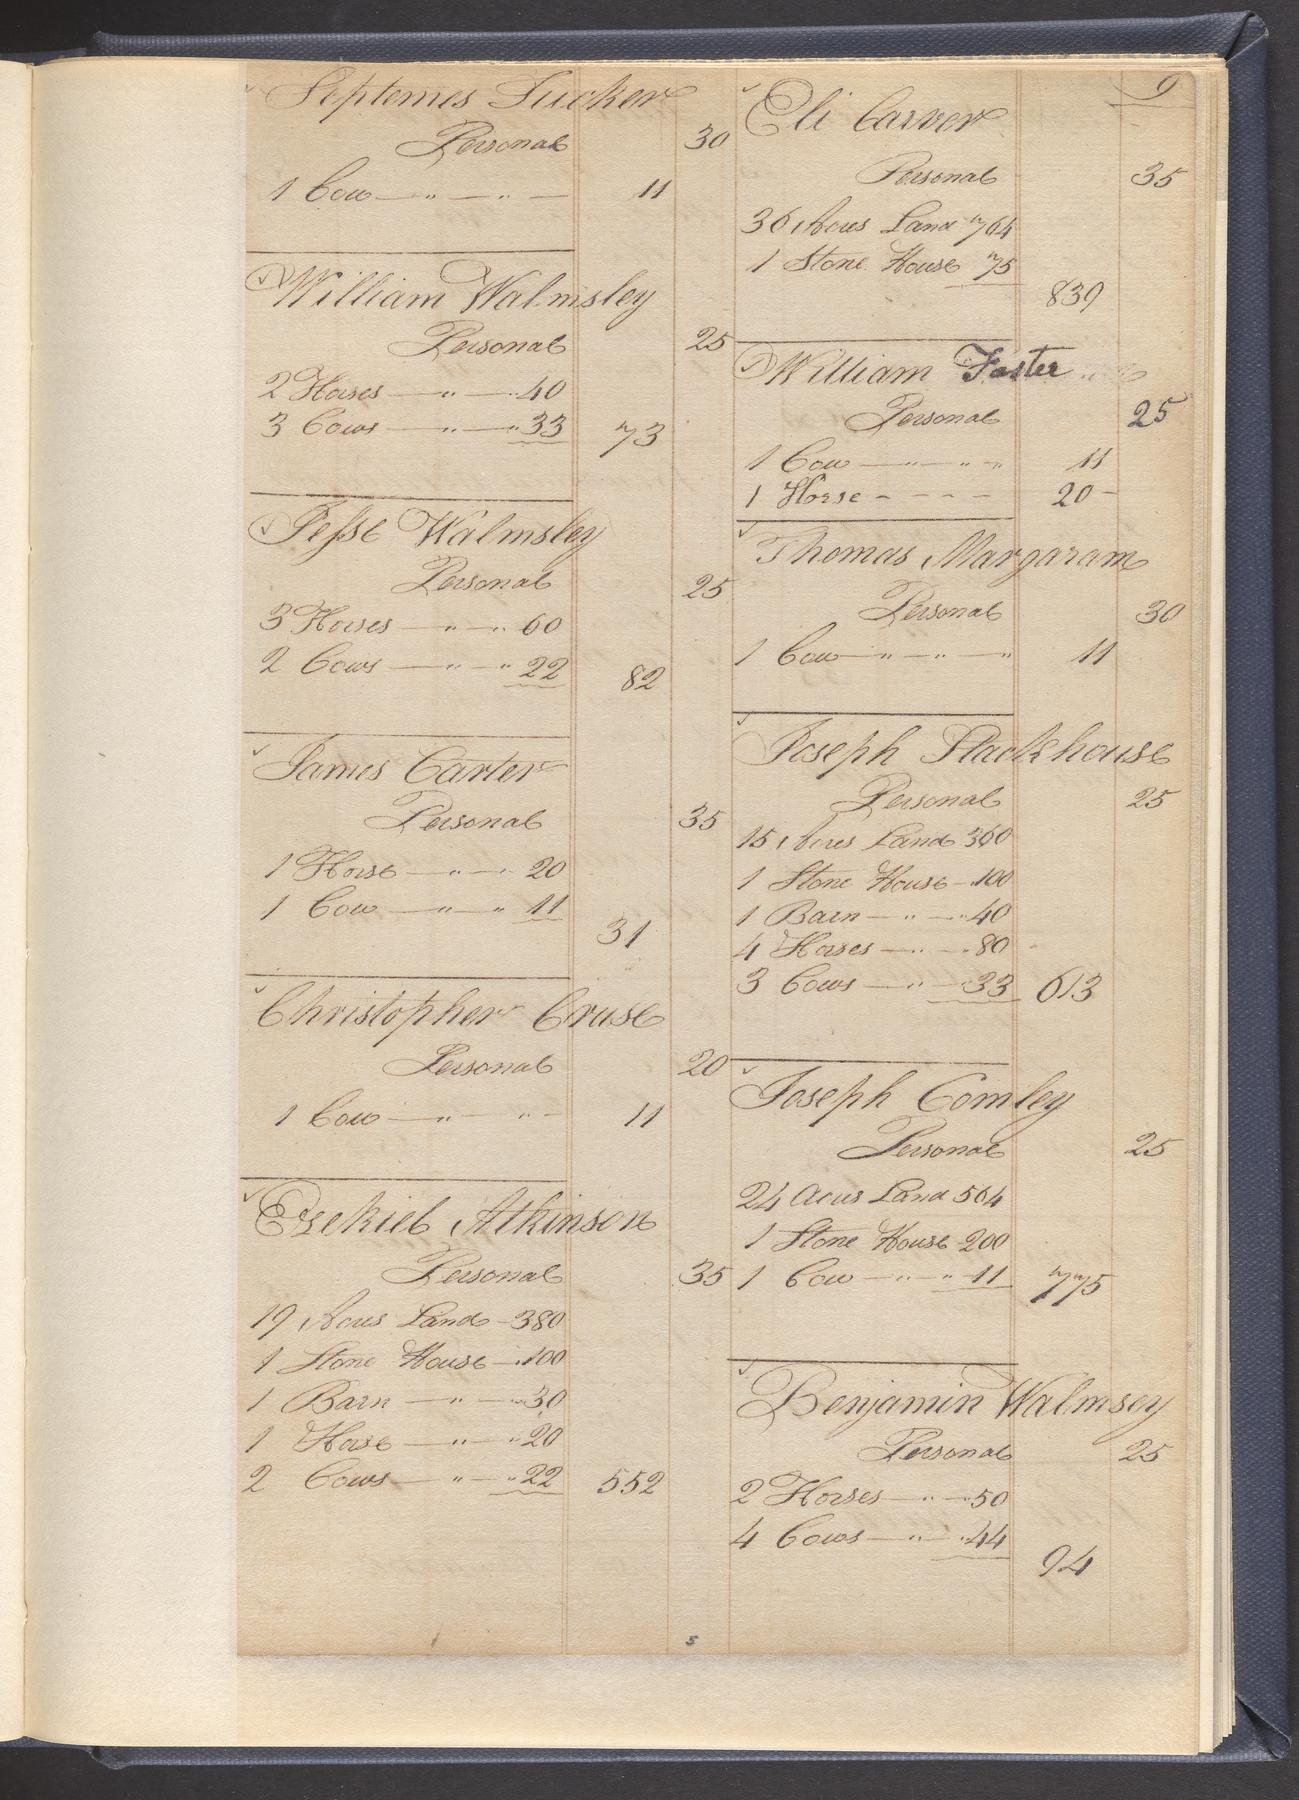 Septemes Tucker
Personal 30
1 Cow — " — " — 11
William Walmsley
Personal 25
2 Horses — " — " 40
3 Cows — " — " 33 73
Jesse Walmsley
Personal 25
3 Horses — " — " 60
2 Cows — " — " 22 82
James Carter
Personal 35
1 Horse — " — " 20
1 Cow — " — " 11
31
Christopher Cruse
Personal 20
1 Cow — " — " — 11
Ezekiel Atkinson
Personal 35
19 Acres Land — 380
1 Stone House — " 100
1 Barn — " — " 30
1 Horse — " — " 20
2 Cows — " — " 22 552
5
9
Eli Carver
Personal 35
36 Acres Land 764
1 Stone House 75
839
William Foster
Personal 25
1 Cow — " — " — " 11
1 Horse - - - - 20 -
Thomas Margaram
Personal 30
1 Cow — " — " — " 11
Joseph Stackhouse
Personal 25
15 Acres Land 360
1 Stone House — " 100
1 Barn — " — " 40
4 Horses — " — " 80
3 Cows — " — " 33 613
Joseph Comley
Personal 25
24 Acres Land 564
1 Stone House 200
1 Cow — " — " 11 775
Benjamin Walmsey
Personal 25
2 Horses — " — " 50
4 Cows — " — " 44
94